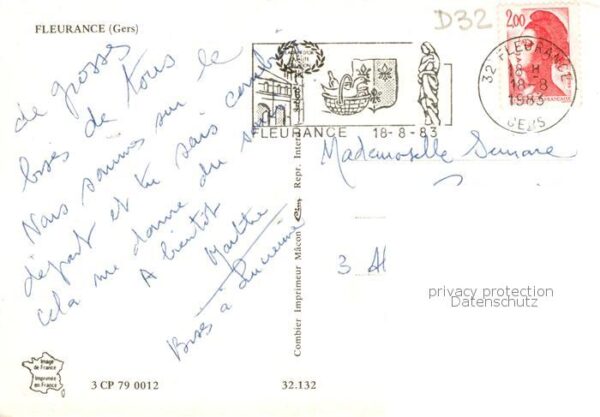 FLEURANCE (Gers)
D32
de grosses
bises de tous
Nous sommes sur le
départ et tu sais combien
cela me donne du souci
A bientôt
Marthe
Bises à Lucienne
FLEURANCE 18-8-83
2,00
32 FLEURANCE
18 H
18-8
1983
GERS
Mademoiselle
3 Al
privacy protection
Datenschutz
Combier Imprimeur Mâcon Cim Repr. Inter
Image
de France
Imprimée
en France
3 CP 79 0012
32.132